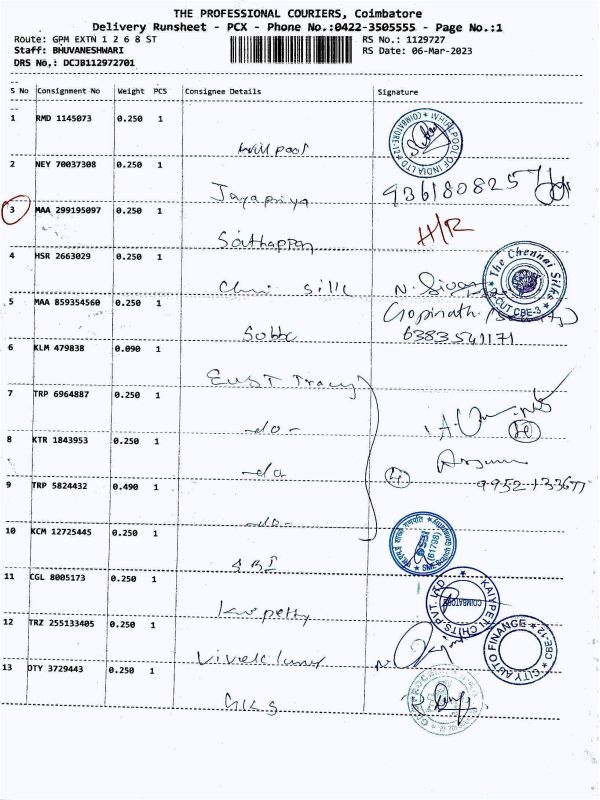 THE PROFESSIONAL COURIERS, Coimbatore
Delivery Runsheet - PCX - Phone No.:0422-3505555 - Page No.:1
Route: GPM EXTN 1 2 6 8 ST RS No.: 1129727
Staff: BHUVANESHWARI RS Date: 06-Mar-2023
DRS No,: DCJB112972701
S No Consignment No Weight PCS Consignee Details Signature
1 RMD 1145073 0.250 1
WHIRLPOOL OF INDIA LTD COIMBATORE-12
2 NEY 70037308 0.250 1
Jayapriya 9361808257
3 MAA 299195097 0.250 1
Sathappan H/R
4 HSR 2663029 0.250 1
silk N. Siva The Chennai Silks CUT CBE-3
5 MAA 859354560 0.250 1 Gopinath
6383541171
6 KLM 479838 0.090 1
7 TRP 6964887 0.250 1
-do-
8 KTR 1843953 0.250 1
-do
9 TRP 5824432 0.490 1 9952133677
-do-
10 KCM 12725445 0.250 1
SBI (61798)
11 CGL 8005173 0.250 1
KAIYPEN CHITS PVT. LTD COIMBATORE
12 TRZ 255133405 0.250 1
Vivek kumar CITY AUTO FINANCE CBE-12
13 OTY 3729443 0.250 1